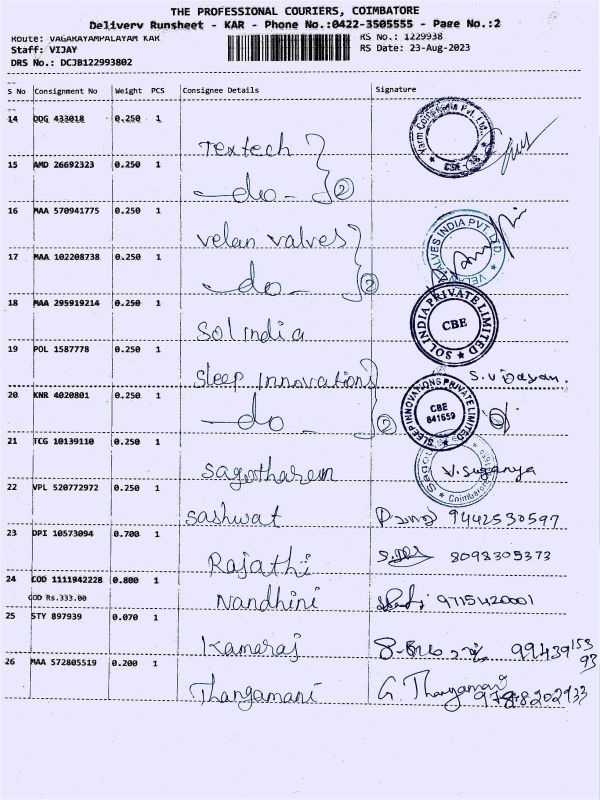 THE PROFESSIONAL COURIERS, COIMBATORE
Delivery Runsheet - KAR - Phone No.:0422-3505555 - Page No.:2
Route: VAGARAYAMPALAYAM KAR
RS No.: 1229938
Staff: VIJAY
RS Date: 23-Aug-2023
DRS No.: DCJB122993802
S No Consignment No Weight PCS Consignee Details Signature
14 DDG 433018 0.250 1
Textech
15 AMD 26692323 0.250 1
—do— 2
16 MAA 570941775 0.250 1
Velan valves
VALVES INDIA PVT. LTD.
17 MAA 102208738 0.250 1
—do— 2
18 MAA 295919214 0.250 1
Solindia
SOLINDIA PRIVATE LIMITED
CBE
19 POL 1587778 0.250 1
Sleep Innovations S.vijayan.
20 KNR 4020801 0.250 1
—do— 2
SLEEP INNOVATIONS PRIVATE LIMITED
CBE
641659
21 TCG 10139110 0.250 1
V.Suganya
Coimbatore
22 VPL 520772972 0.250 1
Sashwat 9442530597
23 DPI 10573094 0.700 1
Rajathi 8098305373
24 COD 1111942228 0.800 1
COD Rs.333.00
Nandhini 9715420001
25 STY 897939 0.070 1
Kamaraj 99439153
93
26 MAA 572805519 0.200 1
Thangamani G Thangamani